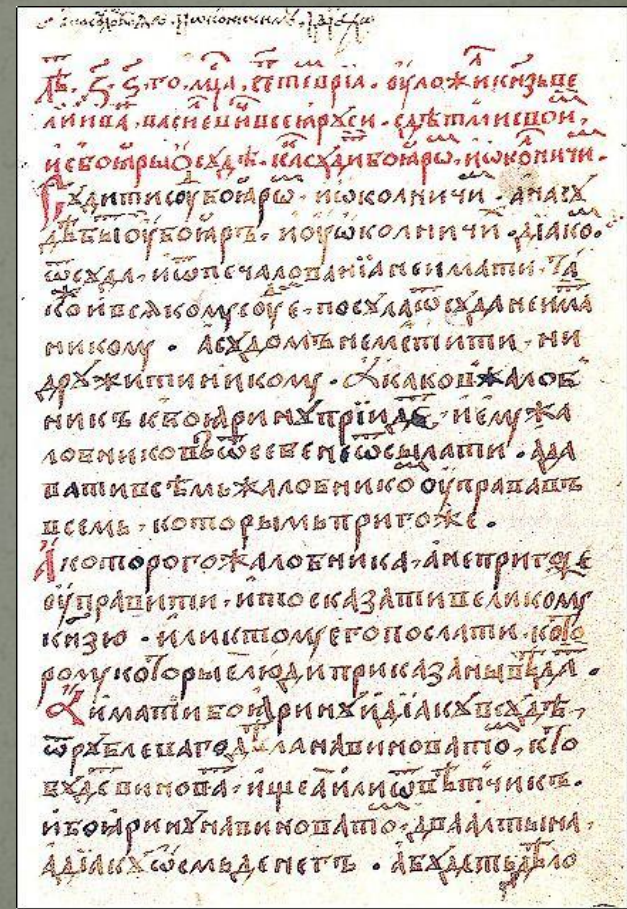 Лѣ, ҂з҃ ѕ҃ го, мц҃а, сетевріа. оуложи кн҃зь ве
ликіи іва васиевич всеа русі. с дѣтми свои,
и с боꙗры ѡ судѣ. как суди боꙗрѡ, и ѡколничи.
Судити су боꙗрѡ, и ѡколничи. а на су
дѣ быти оу боꙗрь, и оу ѡколничи діако.
ѿ суда, и ѿ печалованіа не имати. та
кои всякому соуе, посула ѿ суда не има
никому. а судомъ не мстити, ни
дружити никому. А каков жалоб
никъ к боꙗрину прїиде, и ему жа
лобниковъ ѿ себе не ѿсылати. а да
вати всѣмь жалобнико оуправа въ
всемь, которымь пригоже.
А которого жалобника, а не пригоже
оуправити, и то сказати великому
кн҃зю. или к тому его послати. кото
рому которые люди приказаны вѣда.
А имати боꙗрину и діаку в судѣ,
ѿ рублеваго дѣла на виновато, кто
буде винова. ищеа или ѿвѣтчикъ.
и боꙗрину на виновато, два алтына,
а діаку ѡсмь денегъ. а будеть дѣло